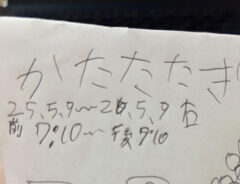 かたたたき
25、5、9〜26、5、9 右
前 7:10〜午後9:10